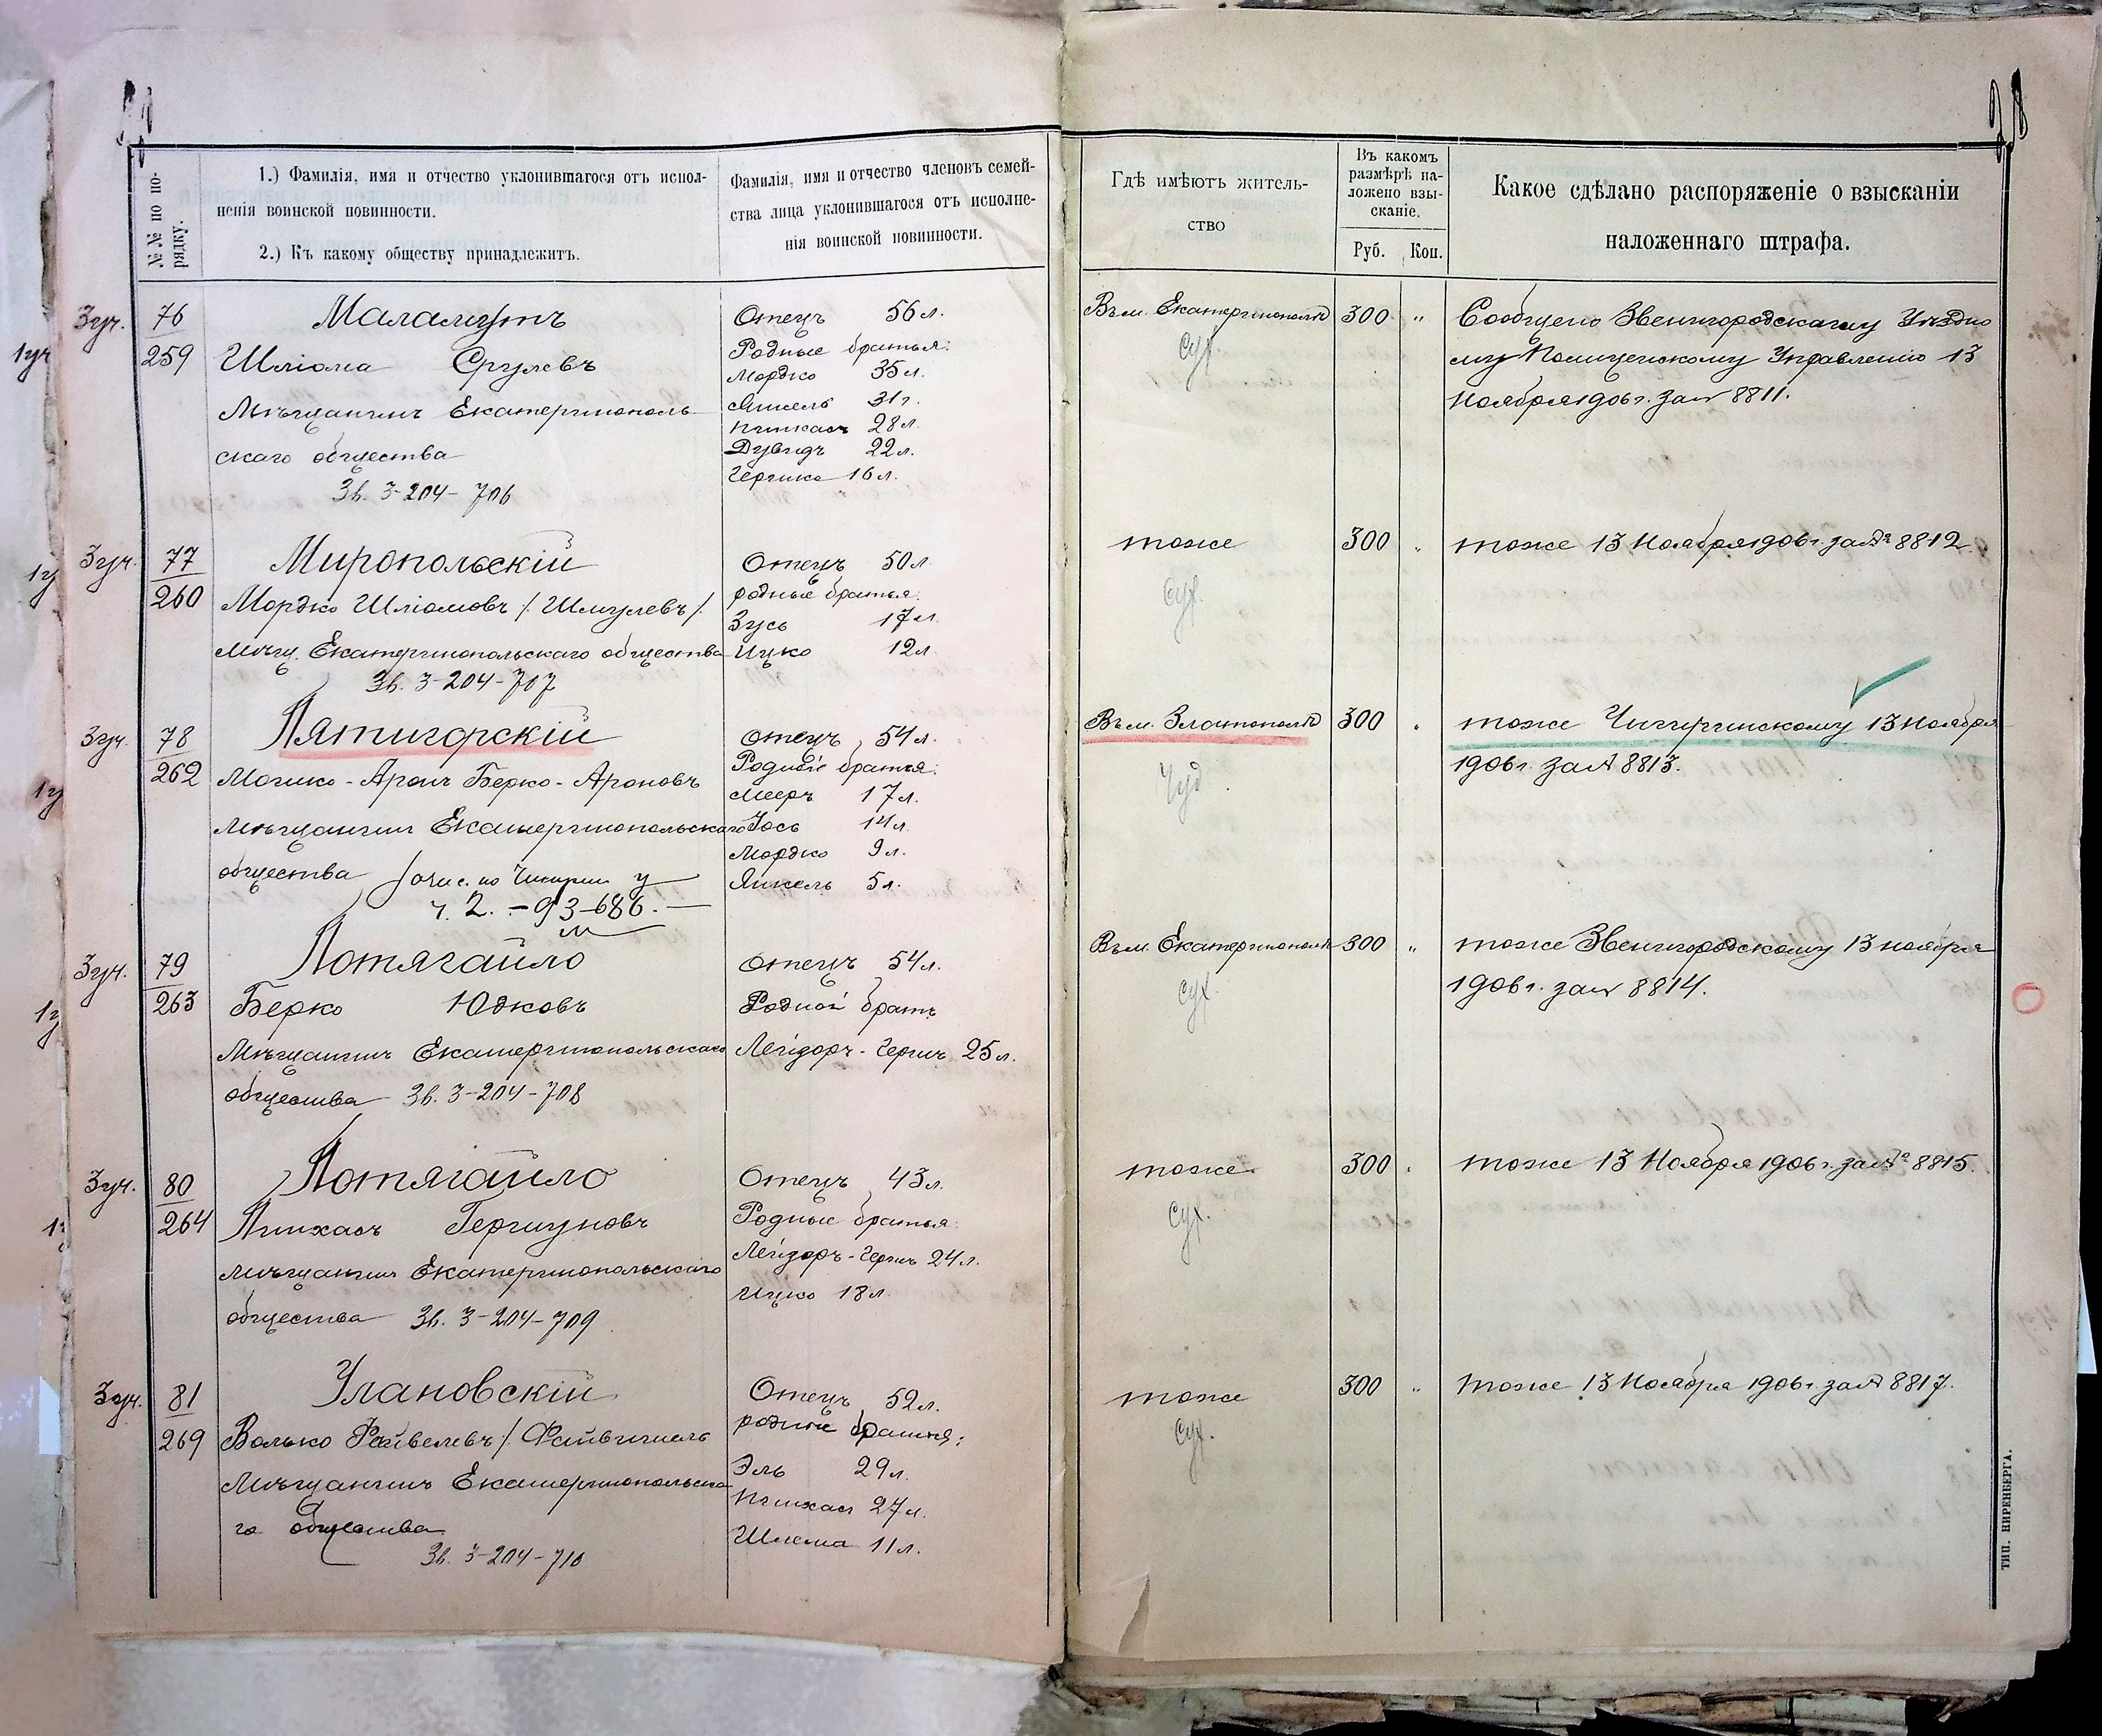 №№ по порядку.
1.) Фамилія, имя и отчество уклонившагося отъ испол-
ненія воинской повинности.
2.) Къ какому обществу принадлежитъ.
Фамилія, имя и отчество членовъ семей-
ства лица уклонившагося отъ исполне-
нія воинской повинности.
Гдѣ имѣютъ житель-
ство
Въ каком
размѣрѣ на-
ложено взы-
сканіе.
Руб. Коп.
Какое сдѣлано распоряженіе о взысканіи
наложеннаго штрафа.
3 уч. 76
1 уч 259
Маламутъ
Шліома Срулевъ
Мѣщанинъ Екатеринополь
скаго общества
Зв. 3-204-706
Отецъ 56 л.
Родные братья:
Мордко 35 л.
Янкель 31 г.
Пинхасъ 28 л.
Дувидъ 22 л.
Гершко 16 л.
Въ м. Екатеринополѣ
Сух.
300 "
Сообщено Звенигородскому Уѣздно
му Полицейскому Управленію 13
Ноября 1906 г. за № 8811.
3 уч. 77
260
Миропольскій
Мордко Шліомовъ /Шмулевъ/
Мѣщ. Екатеринопольскаго общества
Зв. 3-204-707
Отецъ 50 л.
родные братья:
Зусь 17 л.
Ицко 12 л.
тоже
Сух.
300 "
тоже 13 Ноября 1906 г. за № 8812.
3 уч. 78
1 у 262
Пятигорскій
Мошко-Аронъ Берко-Ароновъ
Мѣщанинъ Екатеринопольскаго
общества
ч. 2. - 93-686. -
Отецъ 54 л.
Родные братья:
Мееръ 17 л.
Іось 14 л.
Мордко 9 л.
Янкель 5 л.
Въ м. Златополѣ
300 "
тоже Чигиринскому 13 Ноября
1906 г. за № 8813.
3 уч. 79
263
Потягайло
Берко Юдковъ
Мѣщанинъ Екатеринопольскаго
общества Зв. 3-204-708
Отецъ 54 л.
Родной братъ
Лейзоръ-Гершъ 25 л.
Въ м. Екатеринополѣ
Сух.
300 "
тоже Звенигородскому 13 ноября
1906 г. за № 8814.
3 уч. 80
264
Потягайло
Пинхасъ Гершуновъ
Мѣщанинъ Екатеринопольскаго
общества Зв. 3-204-709
Отецъ 43 л.
Родные братья:
Лейзоръ-Гершъ 24 л.
Ицко 18 л.
тоже
Сух.
300 "
тоже 13 Ноября 1906 г. за № 8815.
3 уч. 81
269
Улановскій
Волько Файвелевъ /Файвишель
Мѣщанинъ Екатеринопольска
го общества
Зв. 3-204-710
Отецъ 52 л.
родные братья:
Эль 29 л.
Пинхасъ 27 л.
Шлема 11 л.
тоже
Сух.
300 "
тоже 13 Ноября 1906 г. за № 8817.
ТИП. НИРЕНБЕРГА.